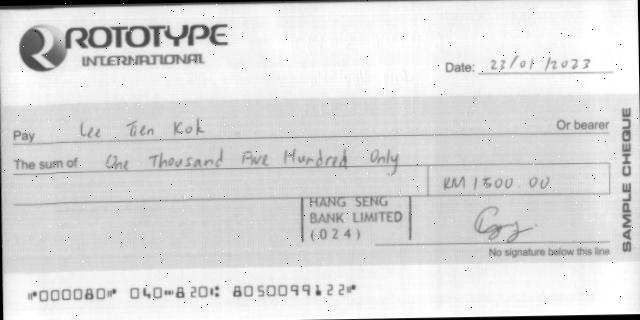 ROTOTYPE
INTERNATIONAL
Date: 23/01/2023
Pay Lee Tien Kok Or bearer
The sum of. One Thousand Five Hundred Only
RM 1500.00
HANG SENG
BANK LIMITED
(.024)
No signature below this line
SAMPLE CHEQUE
⑈000080⑈ 040⑉820⑆ 8050099122⑈